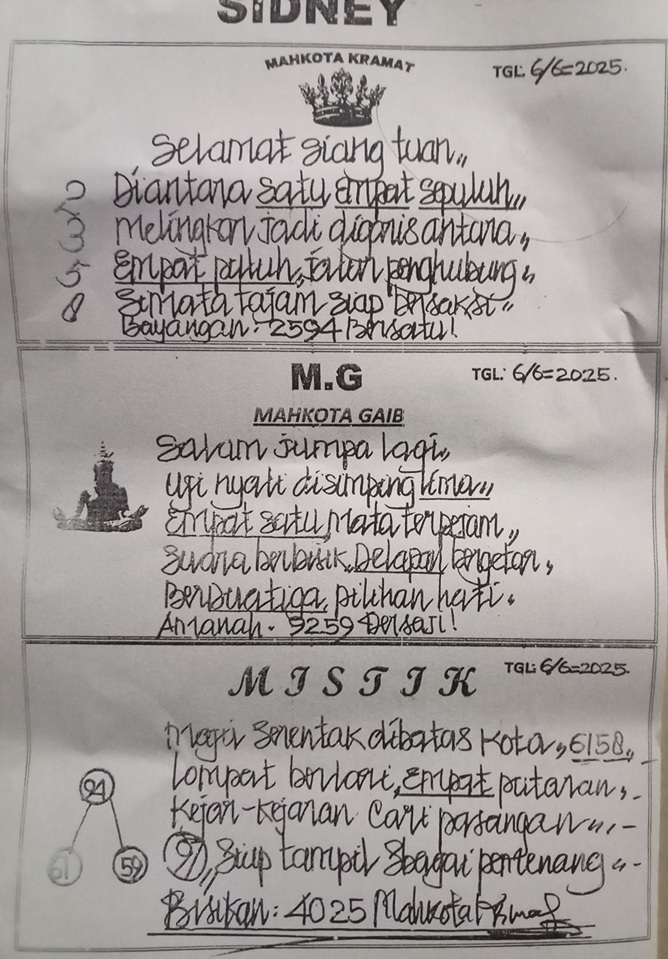 SIDNEY
MAHKOTA KRAMAT
TGL: 6/6=2025.
Selamat siang tuan,,
2 Diantara satu empat sepuluh,,
3 melingkar jadi digaris antara,,
5 Empat puluh, jalan penghubung,,
8 Simata tajam siap bersaksi,,
Bayangan: 2594 Bersatu!
M.G
TGL: 6/6=2025.
MAHKOTA GAIB
Salam jumpa lagi,,
uji nyali disimping lima,,
Empat satu, Mata terpejam,,
Suara berbisik, Delapan bergetar,
BerDuatiga, pilihan hati.
Amanah - 9259 Bersaji!
MISTIK
TGL: 6/6=2025.
serentak dibatas kota,, 6158,,
94 Lompat berlari, empat putaran,-
Kejar-kejaran cari pasangan,,-
61 59 97,, siap tampil sbagai penenang,,-
Bisikan: 4025 Mahkota